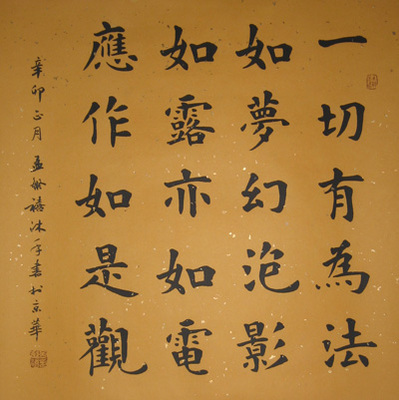 一切有為法
如夢幻泡影
如露亦如電
應作如是觀
辛卯正月孟
沐手書於京華